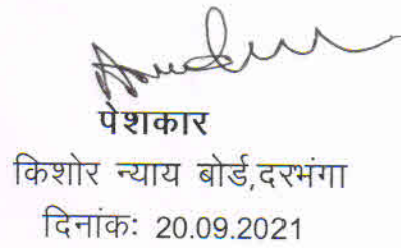 पेशकार
किशोर न्याय बोर्ड,दरभंगा
दिनांकः 20.09.2021